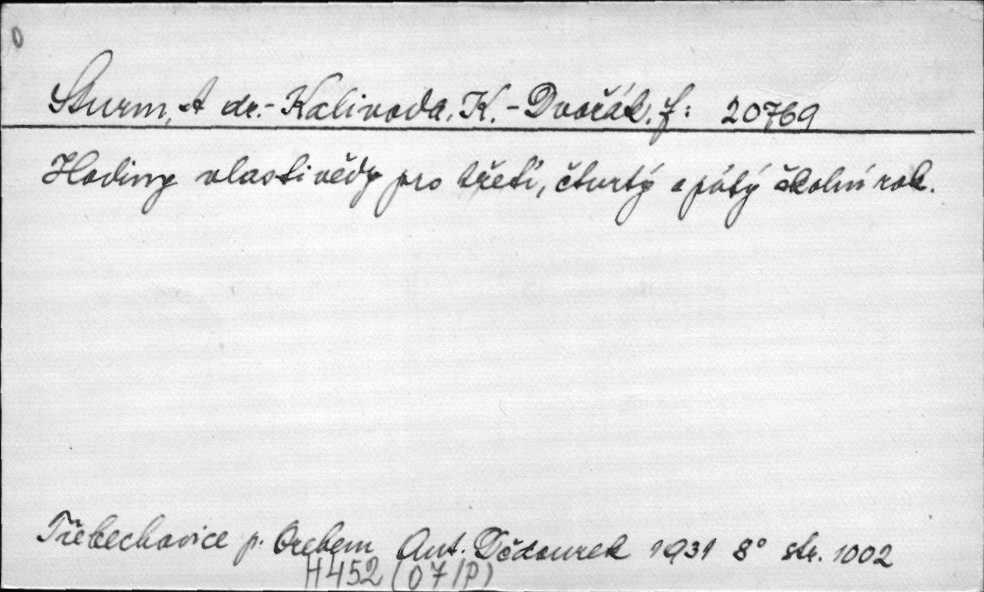 0
Sturm, A dr.- Kalivoda, K. - Dvořák, J: 20769
Hodiny vlastivědy pro třetí, čtvrtý a pátý školní rok.
Třebechovice p. Orebem Ant. Dědourek 1931 8° str. 1002
H452 (07/P)